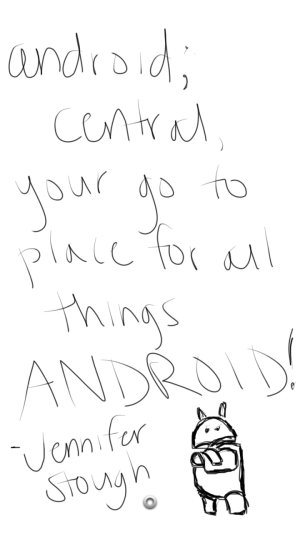 android;
central,
your go to
place for all
things
ANDROID!
-Jennifer
Stough